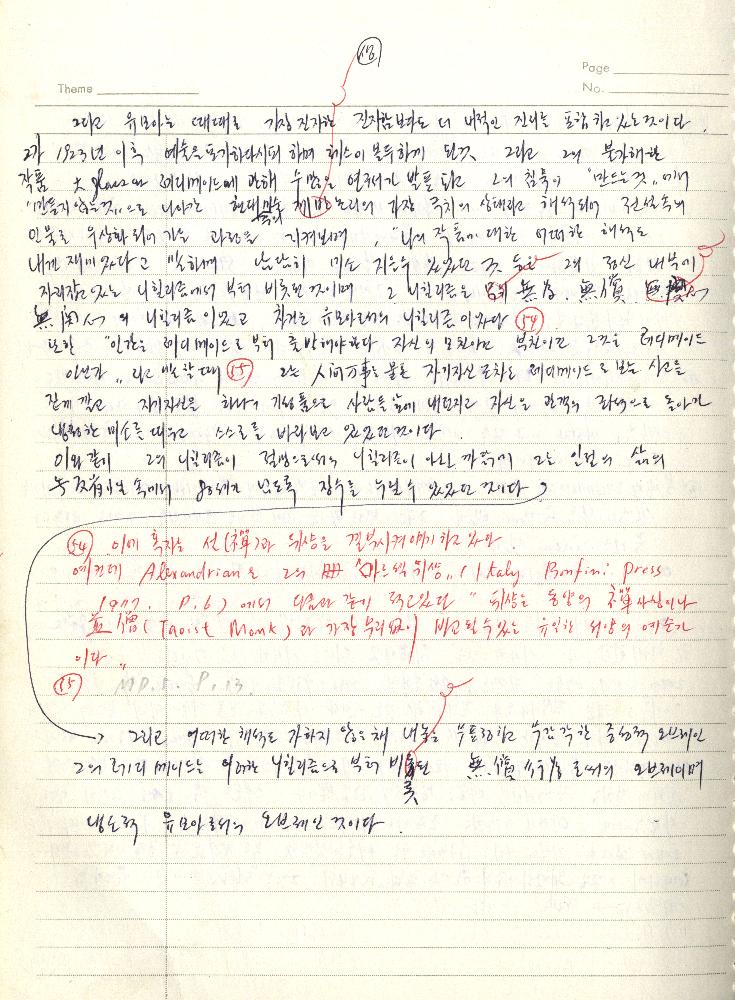 58
Page
Theme
No.
그리고 유모아는 때때로 가장 진지한 진지함보다도 더 내적인 진리를 포함하고 있는 것이다.
그가 1923년 이후 예술을 포기하다시피 하며 체스에 몰두하게 된 것 그리고 그의 불가해한
작품 大glass와 레디메이드에 관해 수많은 연구서가 발표되고 그의 침묵이 "만드는 것"에서
"만들지 않는 것"으로 나아간 현대 논리의 가장 극치의 상태라고 해석되어 전설속의
인물로 우상화 되어가는 과정을 지켜보며, "나의 작품에 대한 어떠한 해석도
내겐 재미있다고 말하며 담담히 미소 지을수 있었던 것 등은 그의 정신 내부에
자리잡고 있는 니힐리즘에서 부터 비롯된 것이며 그 니힐리즘은 無為, 無償,
無関心의 니힐리즘이었고 차거운 유모아로서의 니힐리즘이었다 54
또한 "인간을 레디메이드로 부터 출발해야한다 자신의 모친이고 부친이고 그것은 레디메이드
인 것이다" 라고 말할때 55 그는 人間万事는 물론 자기자신조차도 레디메이드로 보는 사고를
깊게 깔고 자기자신을 하나의 기성품으로 사람들 앞에 내던지고 자신은 관객의 좌석으로 돌아가
냉랭한 미소를 띄우고 스스로를 바라보고 있었던 것이다.
이와같이 그의 니힐리즘이 절망으로서의 니힐리즘이 아닌 까닭에 그는 인절의 삶의
속에서 80세가 넘도록 장수를 누릴수 있었던 것이다.
54 이에 혹자는 선(禪)과 뒤샹을 결부시켜 얘기하고 있다.
예컨데 Alexandrian은 그의 册 "마르셀 뒤샹" (Italy Bonfini Press
1977. P.6)에서 다음과 같이 적고있다 "뒤샹은 동양의 禪사상이나
道僧(Taoist Monk)과 가장 무리없이 비교될 수 있는 유일한 서양의 예술가
이다"
55 MD.S. P.13.
그리고 어떠한 해석도 가하지 않은채 내놓은 무표정하고 무감각한 중성적 오브제인
그의 레디메이드는 이러한 니힐리즘으로 부터 비롯된 無償 行為로서의 오브제이며
냉소적 유모아로서의 오브제인 것이다.